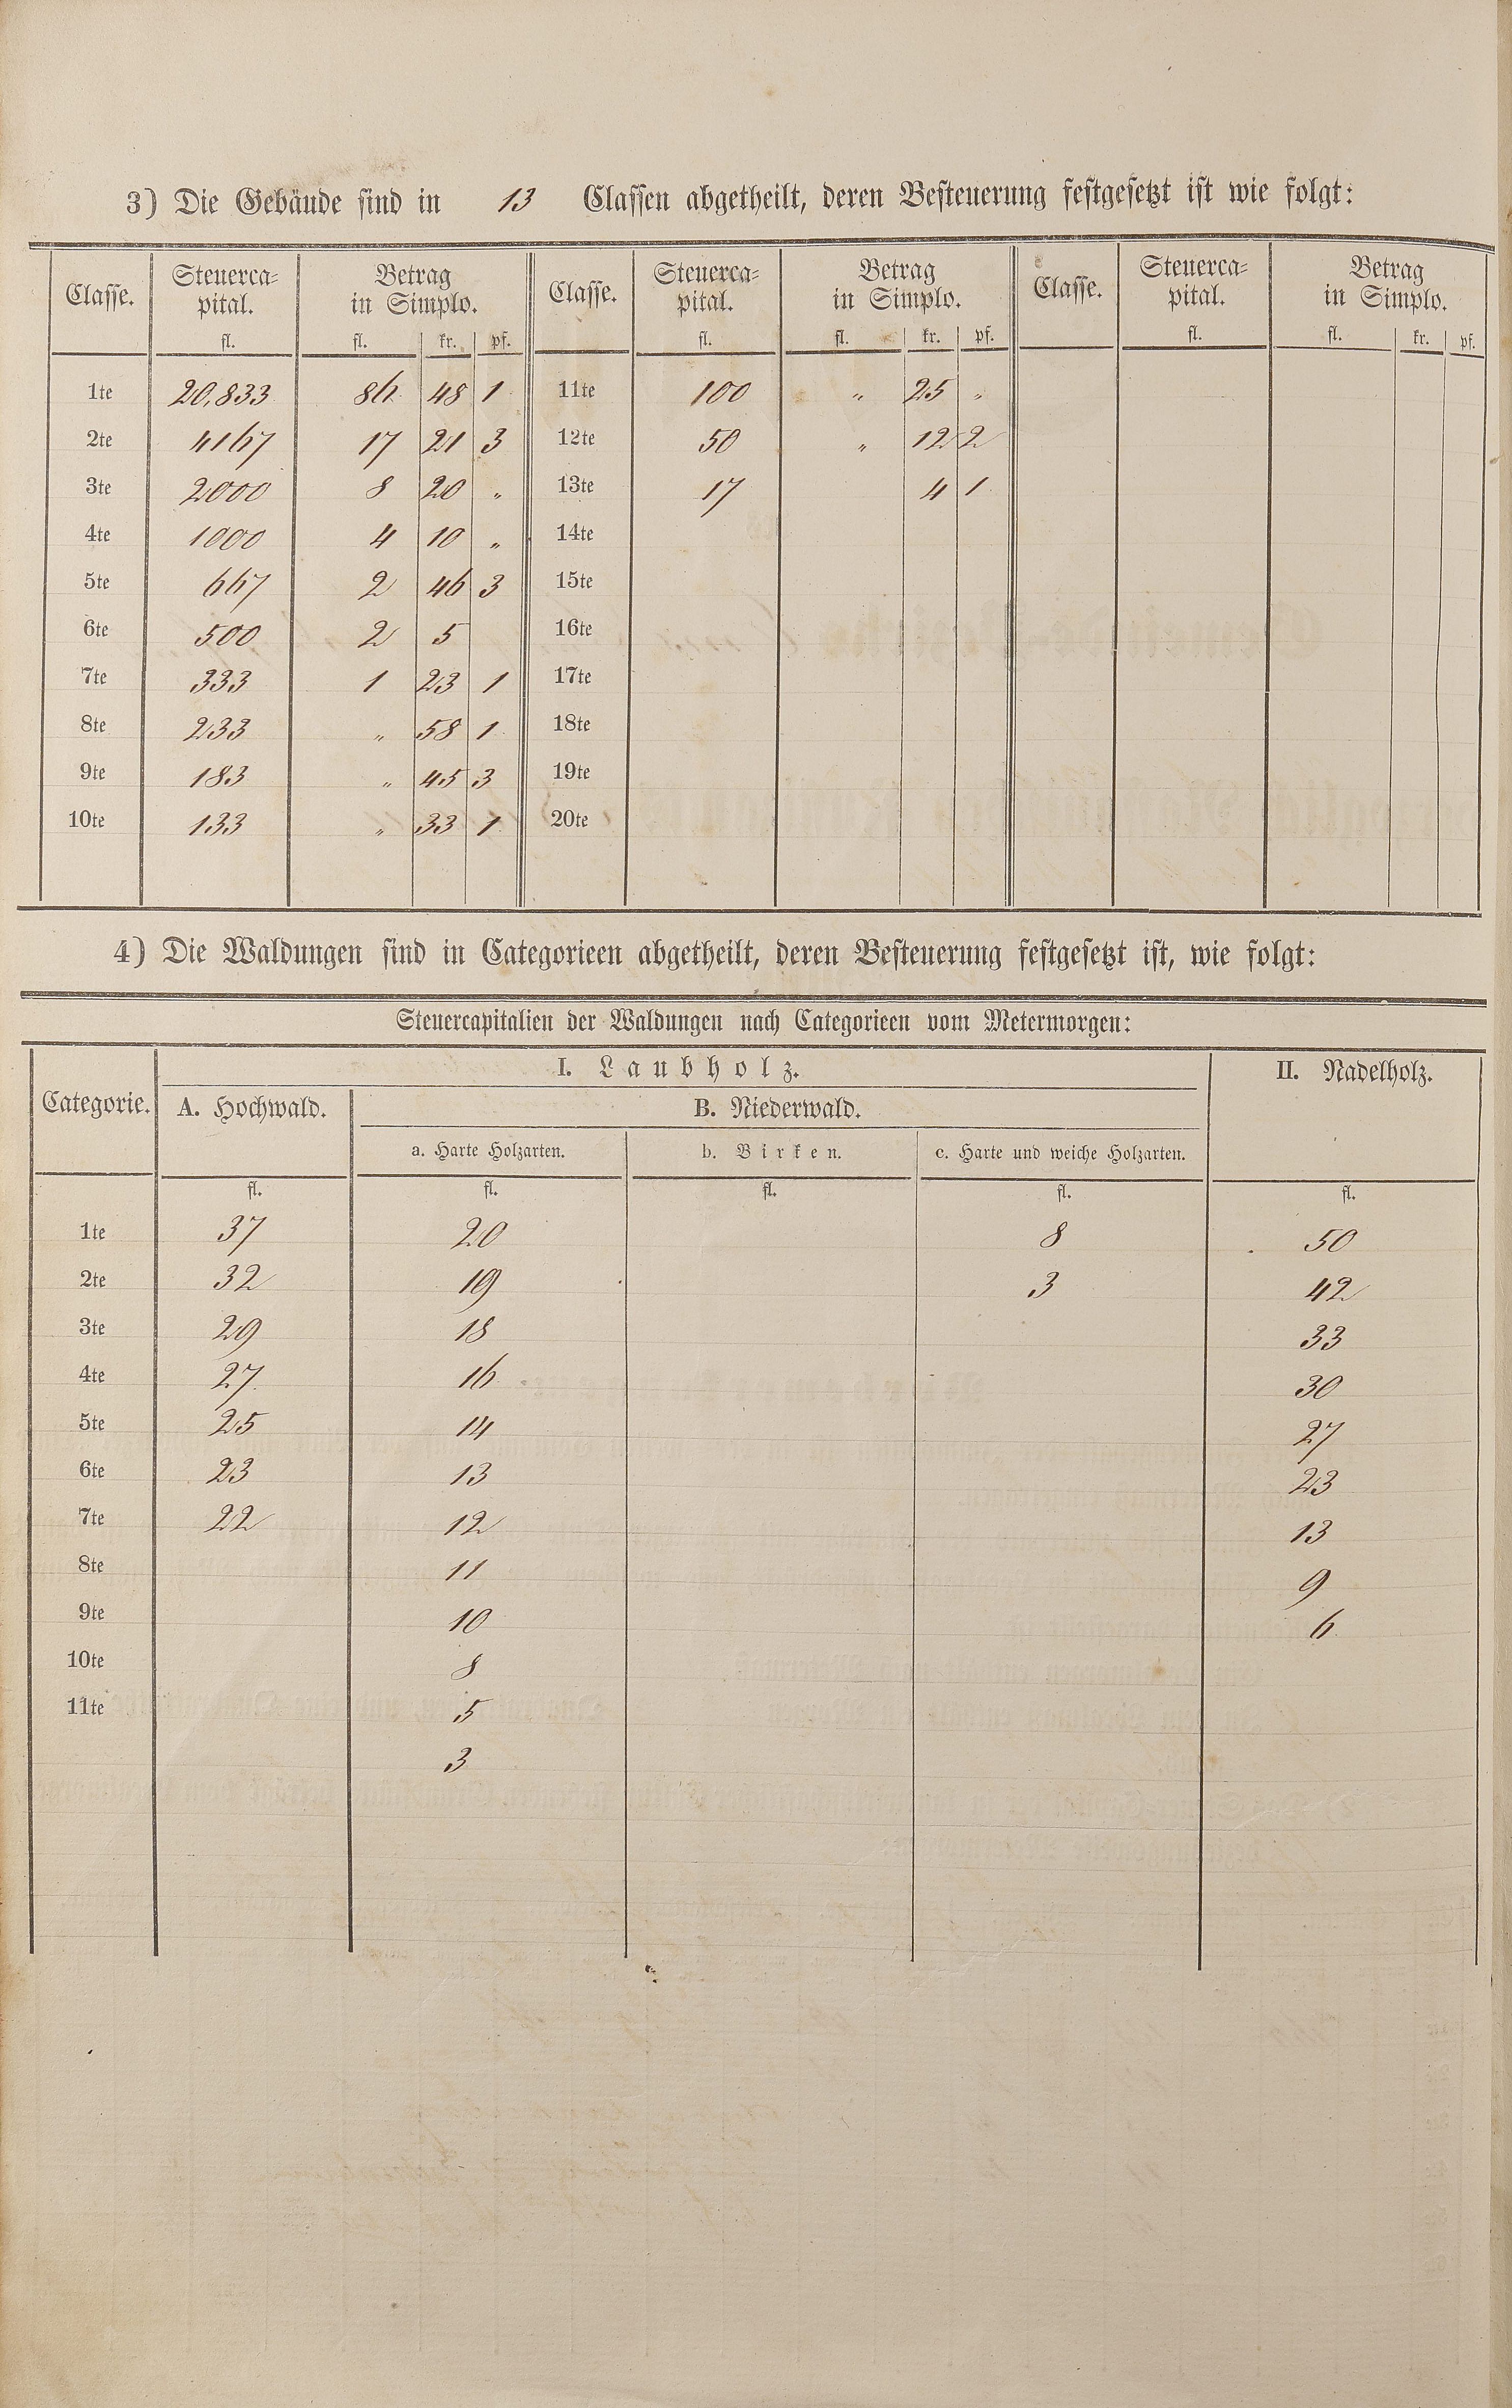 3) Die Gebäude sind in 13 Classen abgetheilt, deren Besteuerung festgesetzt ist wie folgt:
Classe. Steuerca- Betrag Classe. Steuerca- Betrag Classe. Steuerca- Betrag
pital. in Simplo. pital. in Simplo. pital. in Simplo.
fl. fl. kr. pf. fl. fl. kr. pf. fl. fl. kr. pf.
1te 20,833 86 48 1 11te 100 " 25 "
2te 4167 17 21 3 12te 50 " 12 2
3te 2000 8 20 " 13te 17 4 1
4te 1000 4 10 " 14te
5te 667 2 46 3 15te
6te 500 2 5 16te
7te 333 1 23 1 17te
8te 233 " 58 1 18te
9te 183 " 45 3 19te
10te 133 " 33 1 20te
4) Die Waldungen sind in Categorieen abgetheilt, deren Besteuerung festgesetzt ist, wie folgt:
Steuercapitalien der Waldungen nach Categorieen vom Metermorgen:
I. Laubholz. II. Nadelholz.
Categorie. A. Hochwald. B. Niederwald.
a. Harte Holzarten. b. Birken. c. Harte und weiche Holzarten.
fl. fl. fl. fl. fl.
1te 37 20 8 50
2te 32 19 3 42
3te 29 18 33
4te 27 16 30
5te 25 14 27
6te 23 13 23
7te 22 12 13
8te 11 9
9te 10 6
10te 8
11te 5
3